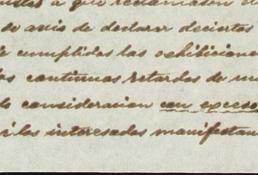 a que reclamasen
so avis de declarar decirtos
e cumplidas las exhibicione
as continuas retardos de
consideracion con exceso
i los interesados manifestan